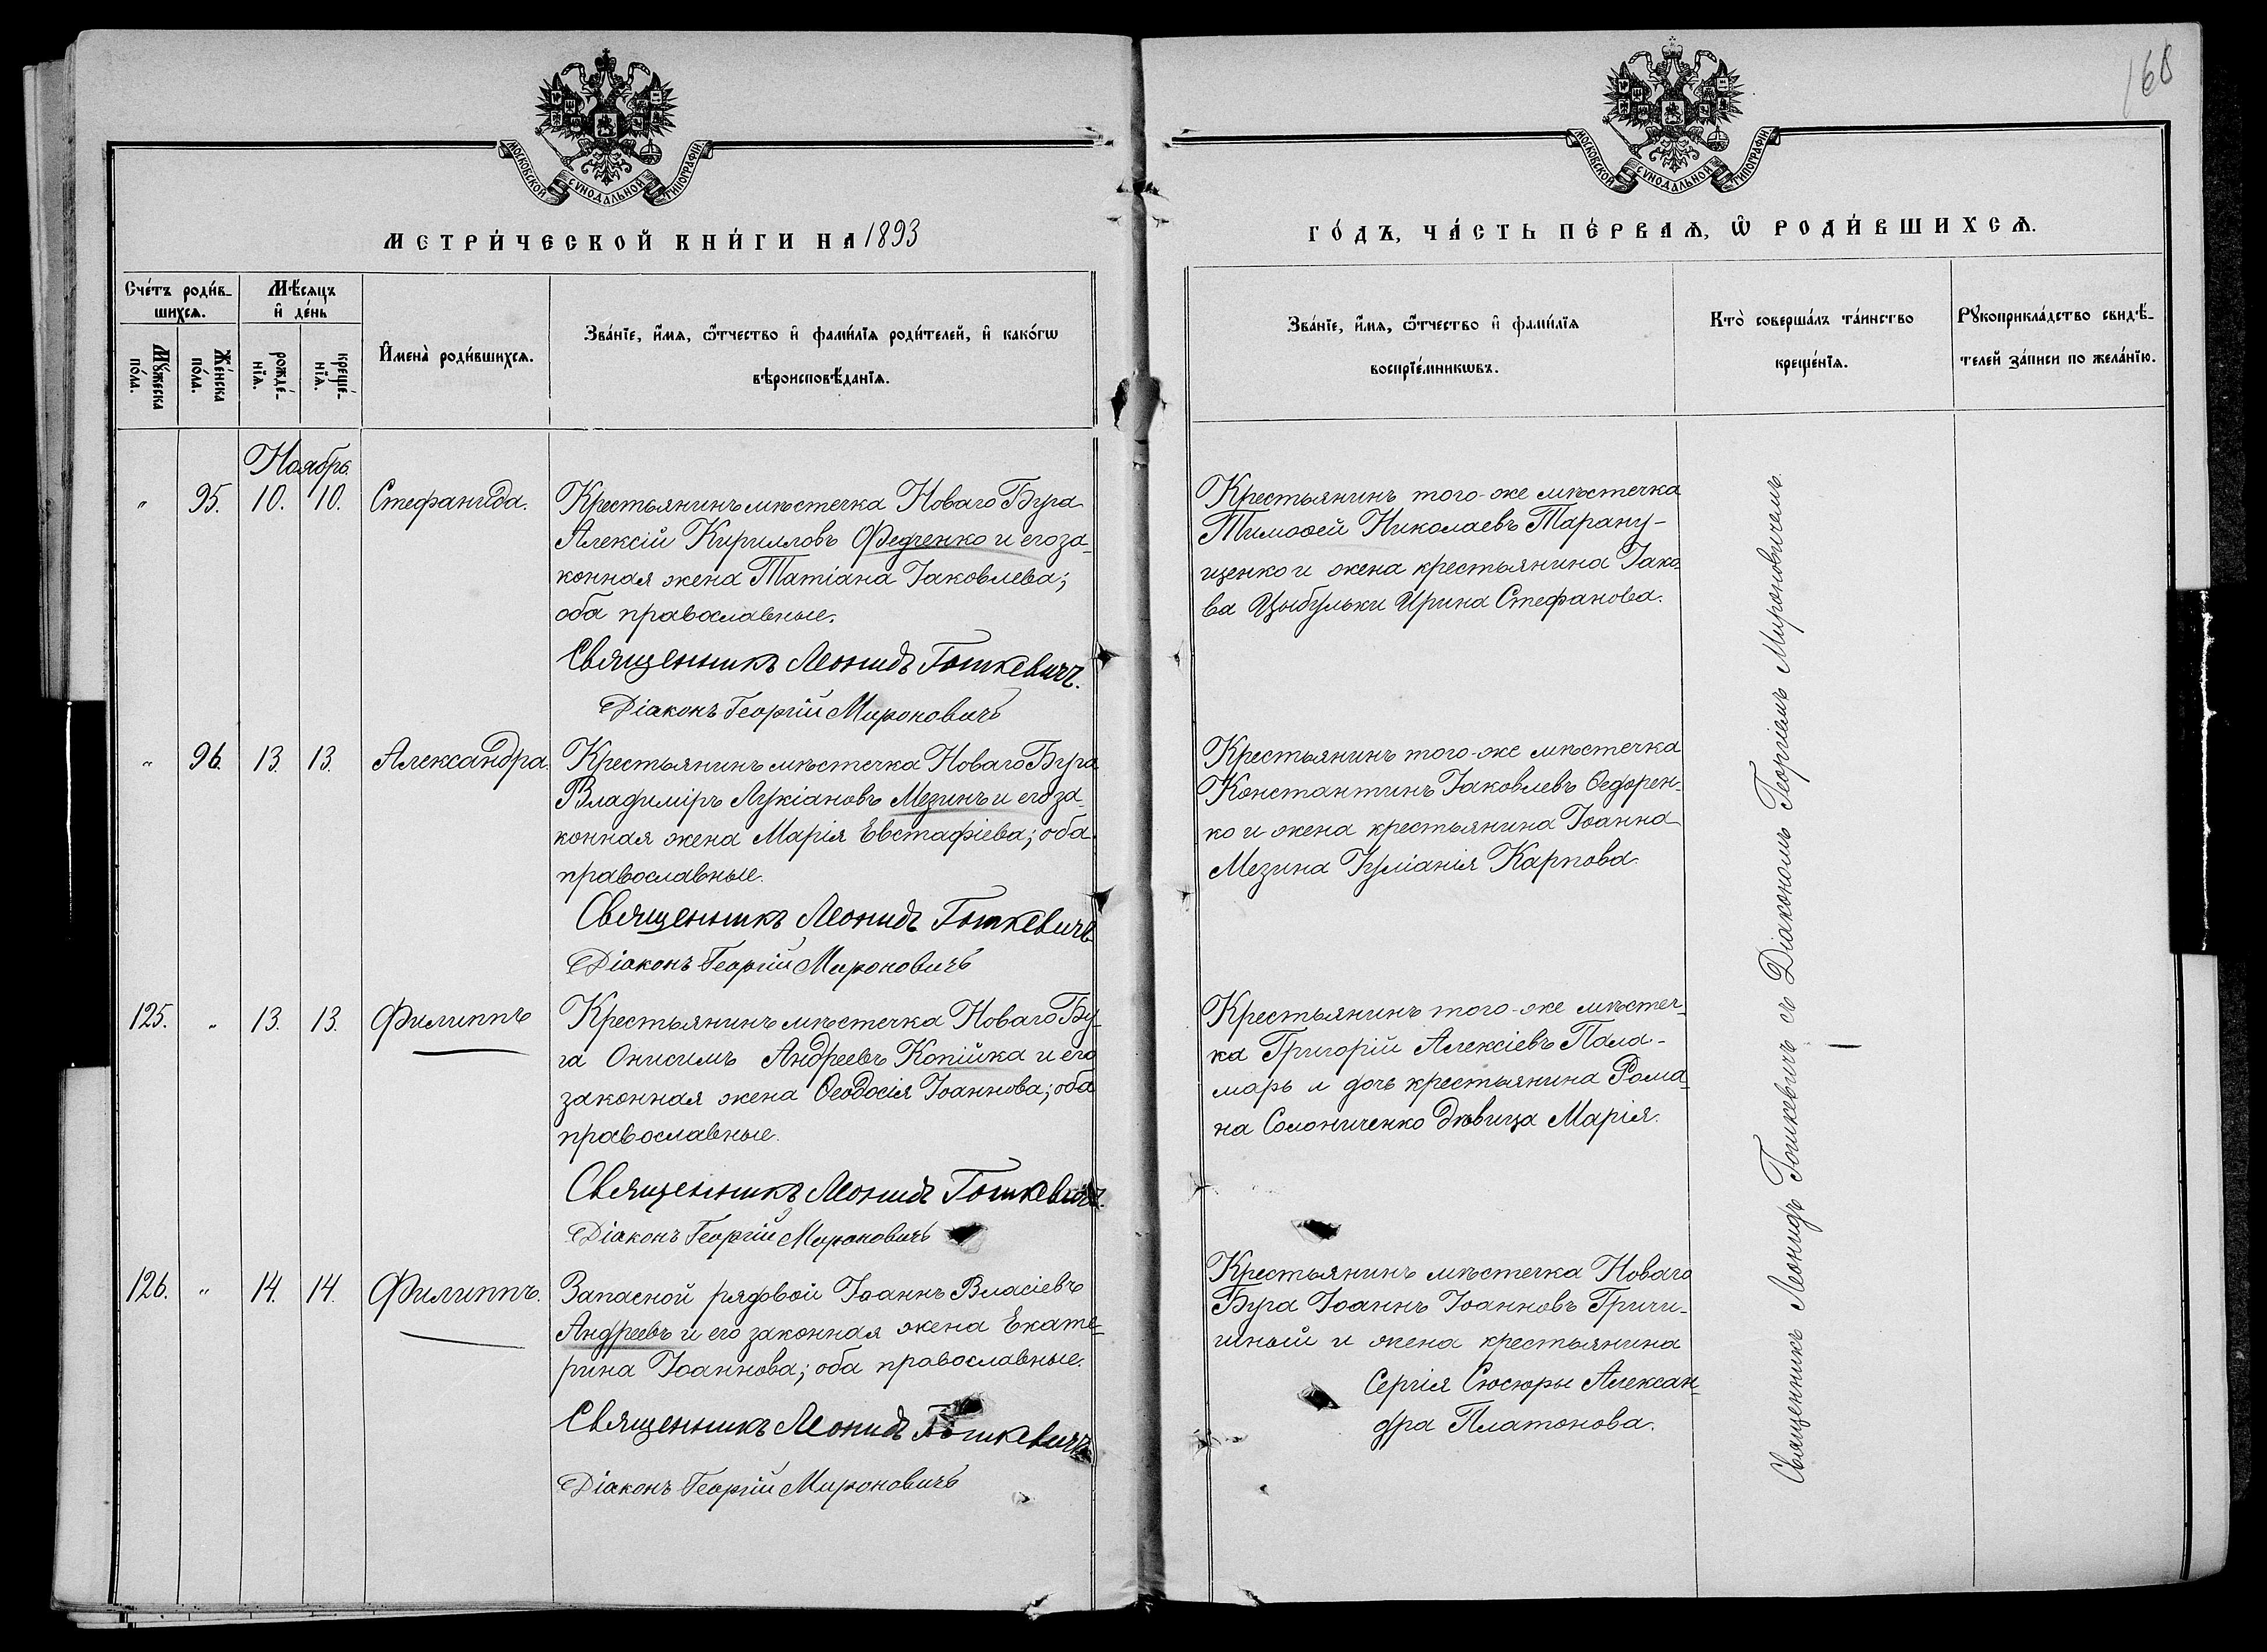 168
МОСКОВСКОЙ СѴНОДАЛЬНОЙ ТИПОГРАФІИ
МОСКОВСКОЙ СѴНОДАЛЬНОЙ ТИПОГРАФІИ
МЕТРИ́ЧЕСКОЙ КНИ́ГИ НА 1893
ГО́ДЪ, ЧА́СТЬ ПЕ́РВАѦ, Ѡ҆ РОДИ́ВШИХСѦ.
Сче́тъ роди́в-
шихсѧ.
Мꙋ́жеска
по́ла.
Же́нска
по́ла.
Мѣ́сѧцъ
и҆ де́нь
рожде́-
нїѧ.
креще́-
нїѧ.
И҆мена̀ роди́вшихсѧ.
Зва́нїе, и҆́мѧ, ѻ҆́тчество и҆ фами́лїѧ роди́телей, и҆ како́гѡ
вѣроисповѣ́данїѧ.
Зва́нїе, и҆́мѧ, ѻ҆́тчество и҆ фами́лїѧ
воспрїе́мникѡвъ.
Кто̀ соверша́лъ та́инство
креще́нїѧ.
Рꙋкоприкла́дство свидѣ́-
телей за́писи по жела́нїю.
Ноябрь.
" 95. 10. 10. Стефанида.
Крестьянинъ мѣстечка Новаго Буга
Алексій Кирилловъ Федченко и его за-
конная жена Татіана Іаковлева;
оба православные.
Священникъ Леонидъ Гошкевичъ.
Діаконъ Георгій Мироновичъ
Крестьянинъ того-же мѣстечка
Тимоѳей Николаевъ Тарану-
щенко и жена крестьянина Іако
ва Цыбульки Ирина Стефанова.
" 96. 13. 13. Александра.
Крестьянинъ мѣстечка Новаго Буга
Владиміръ Лукіановъ Мезинъ и его за-
конная жена Марія Евстафіева; оба
православные.
Священникъ Леонидъ Гошкевичъ
Діаконъ Георгій Мироновичъ
Крестьянинъ того-же мѣстечка
Константинъ Іаковлевъ Ѳедорен-
ко и жена крестьянина Іоанна
Мезина Іуліанія Карпова.
125. " 13. 13. Филиппъ
Крестьянинъ мѣстечка Новаго Бу-
га Онисимъ Андреевъ Копійка и его
законная жена Ѳеодосія Іоаннова; оба
православные.
Священникъ Леонидъ Гошкевичъ.
Діаконъ Георгій Мироновичъ
Крестьянинъ того-же мѣстеч-
ка Григорій Алексіевъ Пала-
марь и дочь крестьянина Рома-
на Солониченко дѣвица Марія.
126. " 14. 14. Филиппъ.
Запасной рядовой Іоаннъ Власіевъ
Андреевъ и его законная жена Екате-
рина Іоаннова; оба православные.
Священникъ Леонидъ Гошкевичъ
Діаконъ Георгій Мироновичъ
Крестьянинъ мѣстечка Новаго
Буга Іоаннъ Іоанновъ Гричи-
шный и жена крестьянина
Сергія Сюсюры Алексан-
дра Платонова.
Священникъ Леонидъ Гошкевичъ съ Діакономъ Георгіемъ Мироновичемъ.